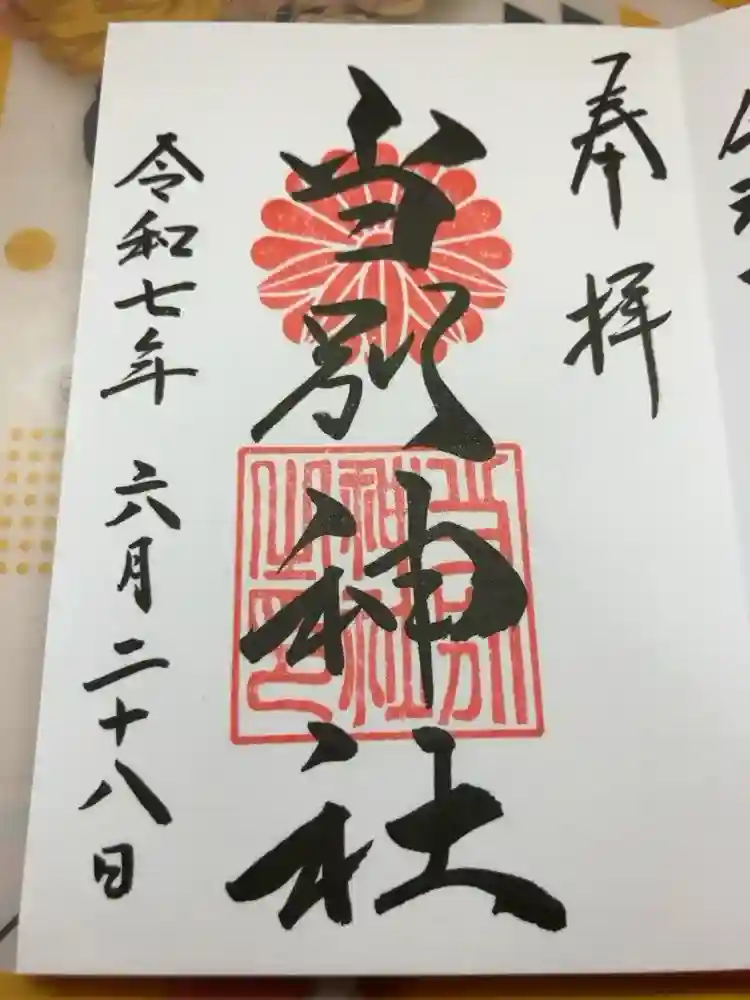 奉拝
当別神社
令和七年 六月二十八日